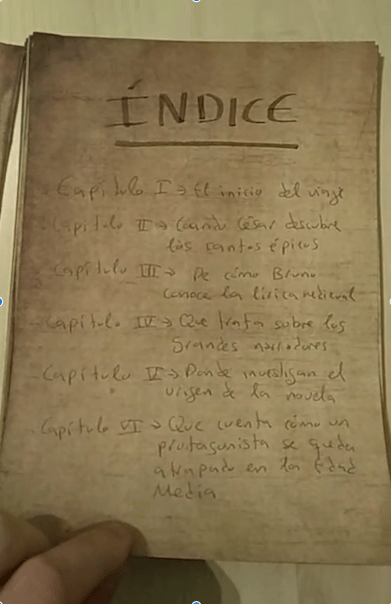 ÍNDICE
- Capítulo I → El inicio del viaje
- Capítulo II → Cuando César descubre
los cantos épicos
- Capítulo III → De cómo Bruno
conoce la lírica medieval
- Capítulo IV → Que trata sobre los
grandes narradores
- Capítulo V → Donde investigan el
origen de la novela
- Capítulo VI → Que cuenta cómo un
protagonista se queda
atrapado en la Edad
Media